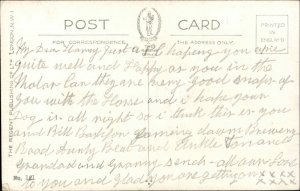 POST CARD
PRINTED IN ENGLAND
FOR CORRESPONDENCE
THE ADDRESS ONLY
THE REGENT PUBLISHING Co Ltd LONDON, N.W.1
My Dear Harry Just a hoping you are
quite well and Happy as you in the
Motor Car they are very Good snaps of
you with the Horse and i hope your
Dog is all right so i think this is you
and Bill down Brewery
Road Aunty and Unkle
Grandad and Granny all our Love
to you and Glad you are getting on
No. 141
x x x x